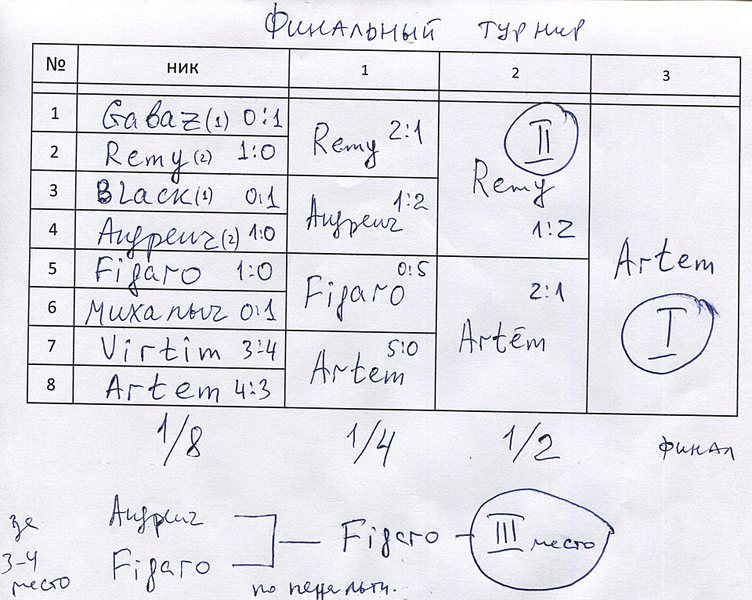 Финальный турнир
№ ник 1 2 3
1 Gabaz(1) 0:1
2 Remy(2) 1:0
Remy 2:1
3 BLack(1) 0:1
4 Андреич(2) 1:0
Андреич 1:2
Remy II
1:2
5 Figaro 1:0
6 Михалыч 0:1
Figaro 0:5
7 Virtim 3:4
8 Artem 4:3
Artem 5:0
Artём 2:1
Artem
I
1/8 1/4 1/2 финал
за
3-4
место
Андреич
Figaro
Figaro III место
по пенальти.